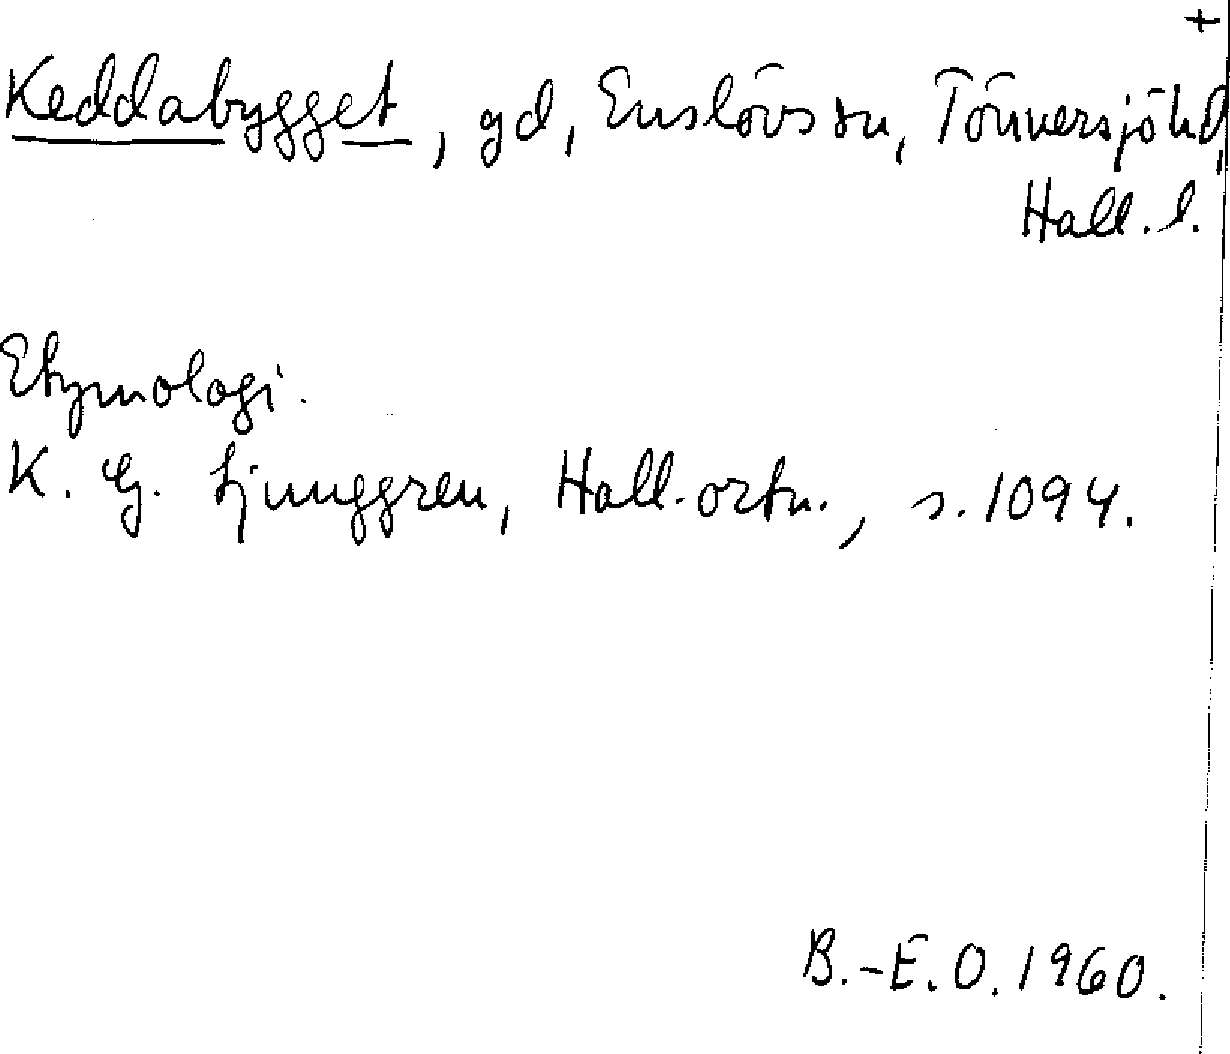 +
Keddabygget, gd, Enslövs sn, Tönnersjö hd,
Hall. l.
Etymologi.
K. G. Ljunggren, Hall. ortn., s. 1094.
B.-E. O. 1960.